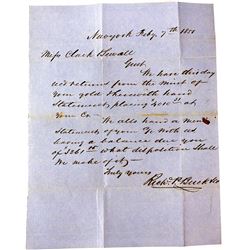 New york Feby. 7th 1851
Clark & Sewall
Gent.
We have this day
recd returns from the Mint of
Your gold Herewith hand
Statement, placing
Your Cr We also hand a
Statement of your with us
having a balance due you
of what disposition Shall
We make of it
Truly Yours
Richd. P. Buck &Co